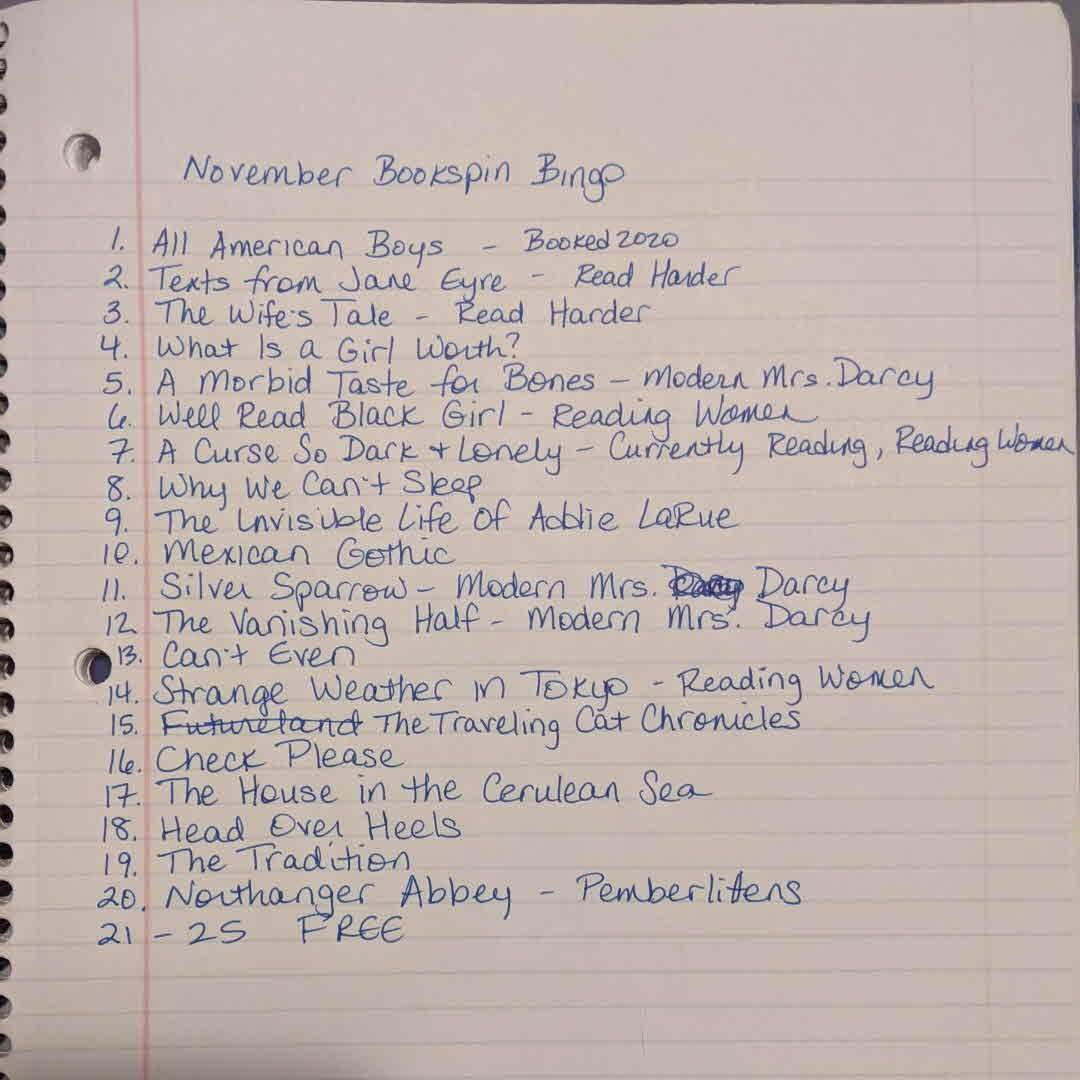 November Bookspin Bingo
1. All American Boys - Booked 2020
2. Texts from Jane Eyre - Read Harder
3. The Wife's Tale - Read Harder
4. What Is a Girl Worth?
5. A Morbid Taste for Bones - Modern Mrs. Darcy
6. Well Read Black Girl - Reading Women
7. A Curse So Dark + Lonely - Currently Reading, Reading Women
8. Why We Can't Sleep
9. The Invisible Life Of Addie LaRue
10. Mexican Gothic
11. Silver Sparrow - Modern Mrs. Darcy
12 The Vanishing Half - Modern Mrs. Darcy
13. Can't Even
14. Strange Weather in Tokyo - Reading Women
15. Futureland The Traveling Cat Chronicles
16. Check Please
17. The House in the Cerulean Sea
18. Head Over Heels
19. The Tradition
20. Northanger Abbey - Pemberlittens
21 - 25 FREE